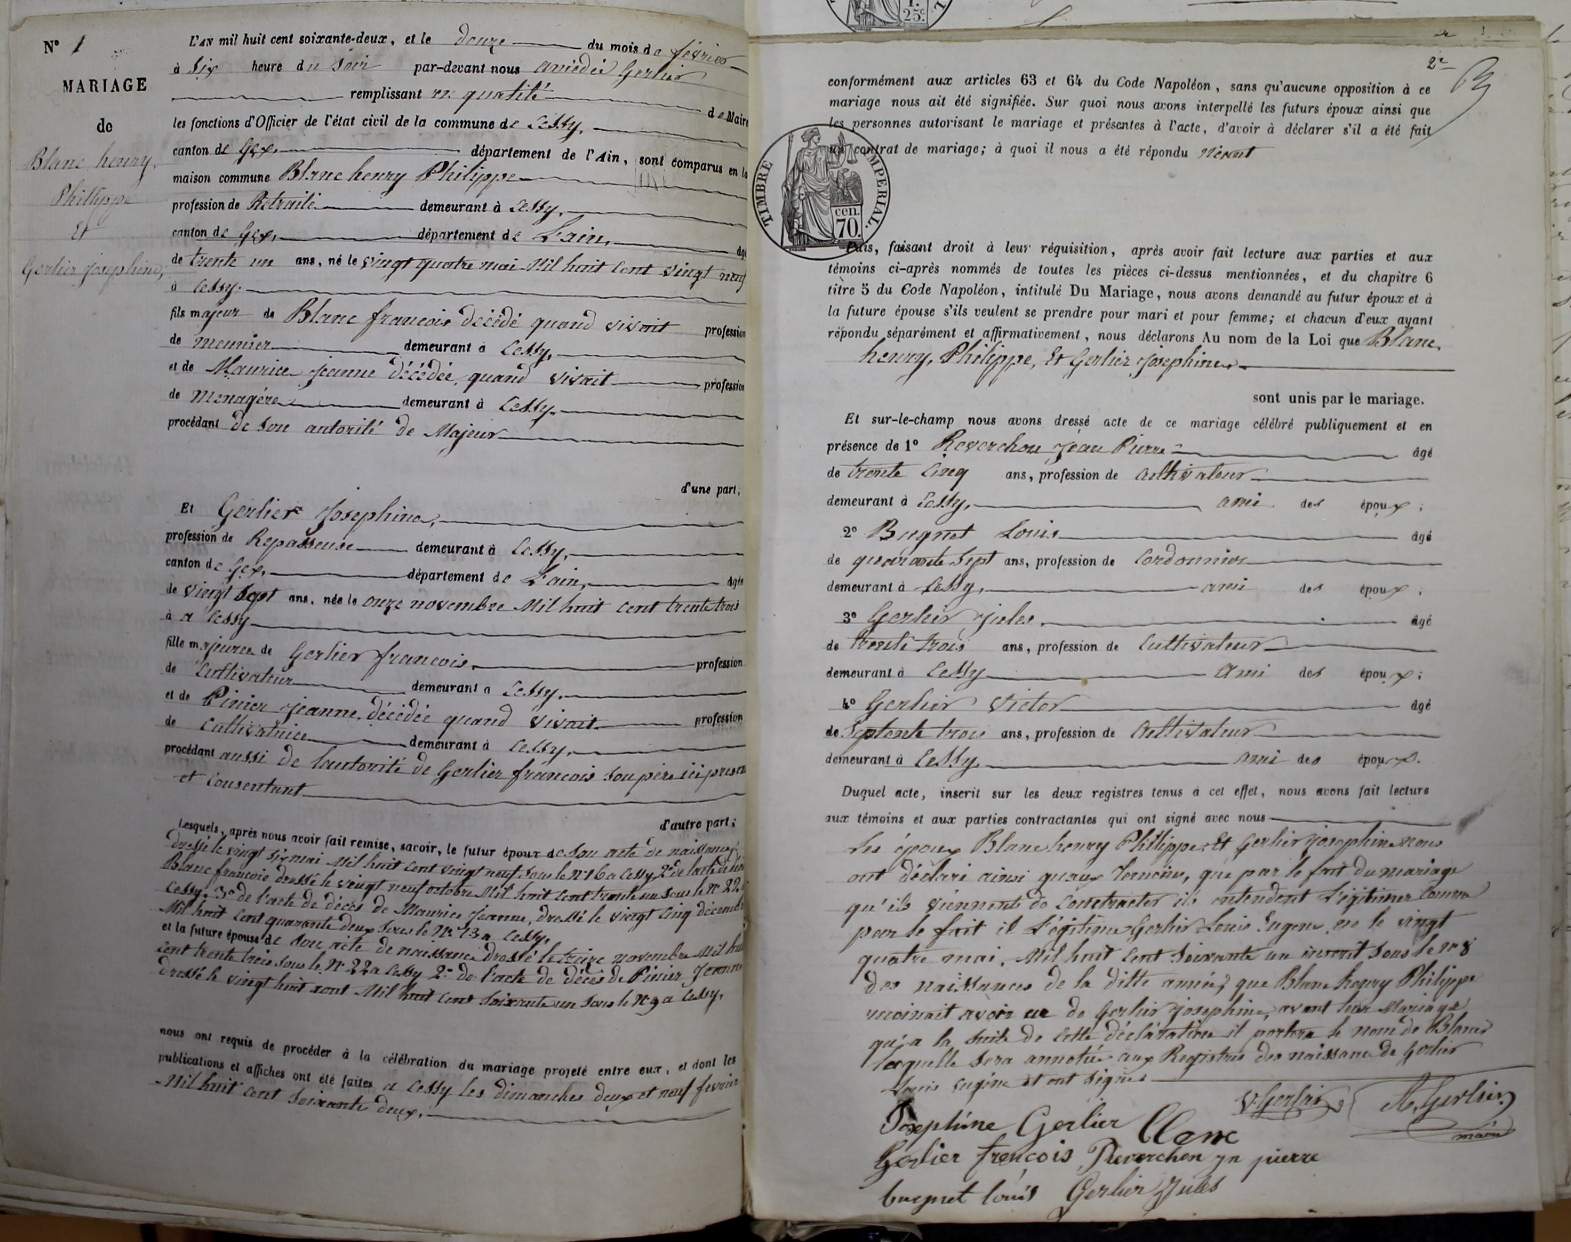 Nº 1
MARIAGE
de
Blanc henry
Philippe
Et
Gerlier josephine,
L'AN mil huit cent soixante-deux, et le douze du mois de février
à Six heure du soir par-devant nous amédéé Gerlier
remplissant en qualité de Maire
les fonctions d'Officier de l'état civil de la commune de Cessy,
canton de Gex, département de l'Ain, sont comparus en la
maison commune Blanc henry Philippe
profession de Retraité demeurant à Cessy,
canton de Gex, département de L'ain, âgé
de trente un ans, né le vingt quatre mai Mil huit cent vingt neuf
à Cessy.
fils majeur de Blanc francois décédé quand vivait profession
de meunier demeurant à Cessy,
et de Maurice Jeanne décédée, quand vivait profession
de Menagère demeurant à Cessy.
procédant de son autorité de Majeur
d'une part,
Et Gerlier Josephine,
profession de Repasseuse demeurant à Cessy,
canton de Gex, département de L'ain, âgée
de vingt sept ans, née le onze novembre Mil huit cent trente trois
à a Cessy
fille majeure de Gerlier francois, profession
de Cultivateur demeurant à Cessy.
et de Pinier Jeanne, décédée quand vivait profession
de Cultivatrice demeurant à Cessy,
procédant aussi de l'autorité de Gerlier francois son père ici présent
et consentant
d'autre part;
Lesquels, après nous avoir fait remise, savoir, le futur époux de Son acte de naissance,
dressé le vingt six mai Mil huit cent vingt neuf sous le Nº 16 a Cessy 2º de l'acte de
Blanc francois dressé le vingt neuf octobre Mil huit cent trente un sous le Nº 22
Cessy 3º de l'acte de décès de Maurice Jeanne, dressé le vingt cinq décembre
Mil huit cent quarante deux sous le Nº 13 a Cessy.
et la future épouse de Son acte de naissance dressé le treize novembre Mil huit
cent trente trois sous le Nº 22 a Cessy 2º de l'acte de décès de Pinier Jeanne
dressé le vingt huit aout Mil huit cent soixante un sous le Nº 9 a Cessy,
nous ont requis de procéder à la célébration du mariage projeté entre eux, et dont les
publications et affiches ont été faites a Cessy les dimanches deux et neuf février
Mil huit cent soixante deux,
2º
conformément aux articles 63 et 64 du Code Napoléon, sans qu'aucune opposition à ce
mariage nous ait été signifiée. Sur quoi nous avons interpellé les futurs époux ainsi que
les personnes autorisant le mariage et présentes à l'acte, d'avoir à déclarer s'il a été fait
un contrat de mariage; à quoi il nous a été répondu Néant
TIMBRE IMPERIAL
cen.
70.
Puis, faisant droit à leur réquisition, après avoir fait lecture aux parties et aux
témoins ci-après nommés de toutes les pièces ci-dessus mentionnées, et du chapitre 6
titre 5 du Code Napoléon, intitulé Du Mariage, nous avons demandé au futur époux et à
la future épouse s'ils veulent se prendre pour mari et pour femme; et chacun d'eux ayant
répondu séparément et affirmativement, nous déclarons Au nom de la Loi que Blanc,
henry, Philippe, Et Gerlier Josephine
sont unis par le mariage.
Et sur-le-champ nous avons dressé acte de ce mariage célébré publiquement et en
présence de 1º Reverchon Jean Pierre âgé
de trente Cinq ans, profession de Cultivateur
demeurant à Cessy, ami des époux;
2º Bugnet Louis âgé
de quarante Sept ans, profession de Cordonnier
demeurant à Cessy, ami des époux;
3º Gerlier Jules, âgé
de trente trois ans, profession de Cultivateur
demeurant à Cessy ami des époux;
4º Gerlier Victor âgé
de Septente trois ans, profession de Cultivateur
demeurant à Cessy ami des époux.
Duquel acte, inscrit sur les deux registres tenus à cet effet, nous avons fait lecture
aux témoins et aux parties contractantes qui ont signé avec nous
Les époux Blanc henry Philippe Et Gerlier Josephine nous
ont déclaré ainsi quaux Temoins, que par le fait du mariage
qu'ils viennent de Contracter ils entendent Légitimer Comme
par le fait il Légitime Gerlier Louis Eugene, né le vingt
quatre mai, Mil huit Cent Soixante un inscrit sous le nº 8
des naissances de la ditte année, que Blanc henry Philippe
reconnait avoir eu de Gerlier Josephine, avant leur Mariage
qu'a la suite de cette déclaration il portera le nom de Blanc
laquelle sera annotée aux Registres des naissance de Gerlier
Louis Eugène et ont signés
V. Gerlier A. Gerlier
maire
Josephine Gerlier Blanc
Gerlier francois Reverchon jn pierre
bugnet louis Gerlier Jules